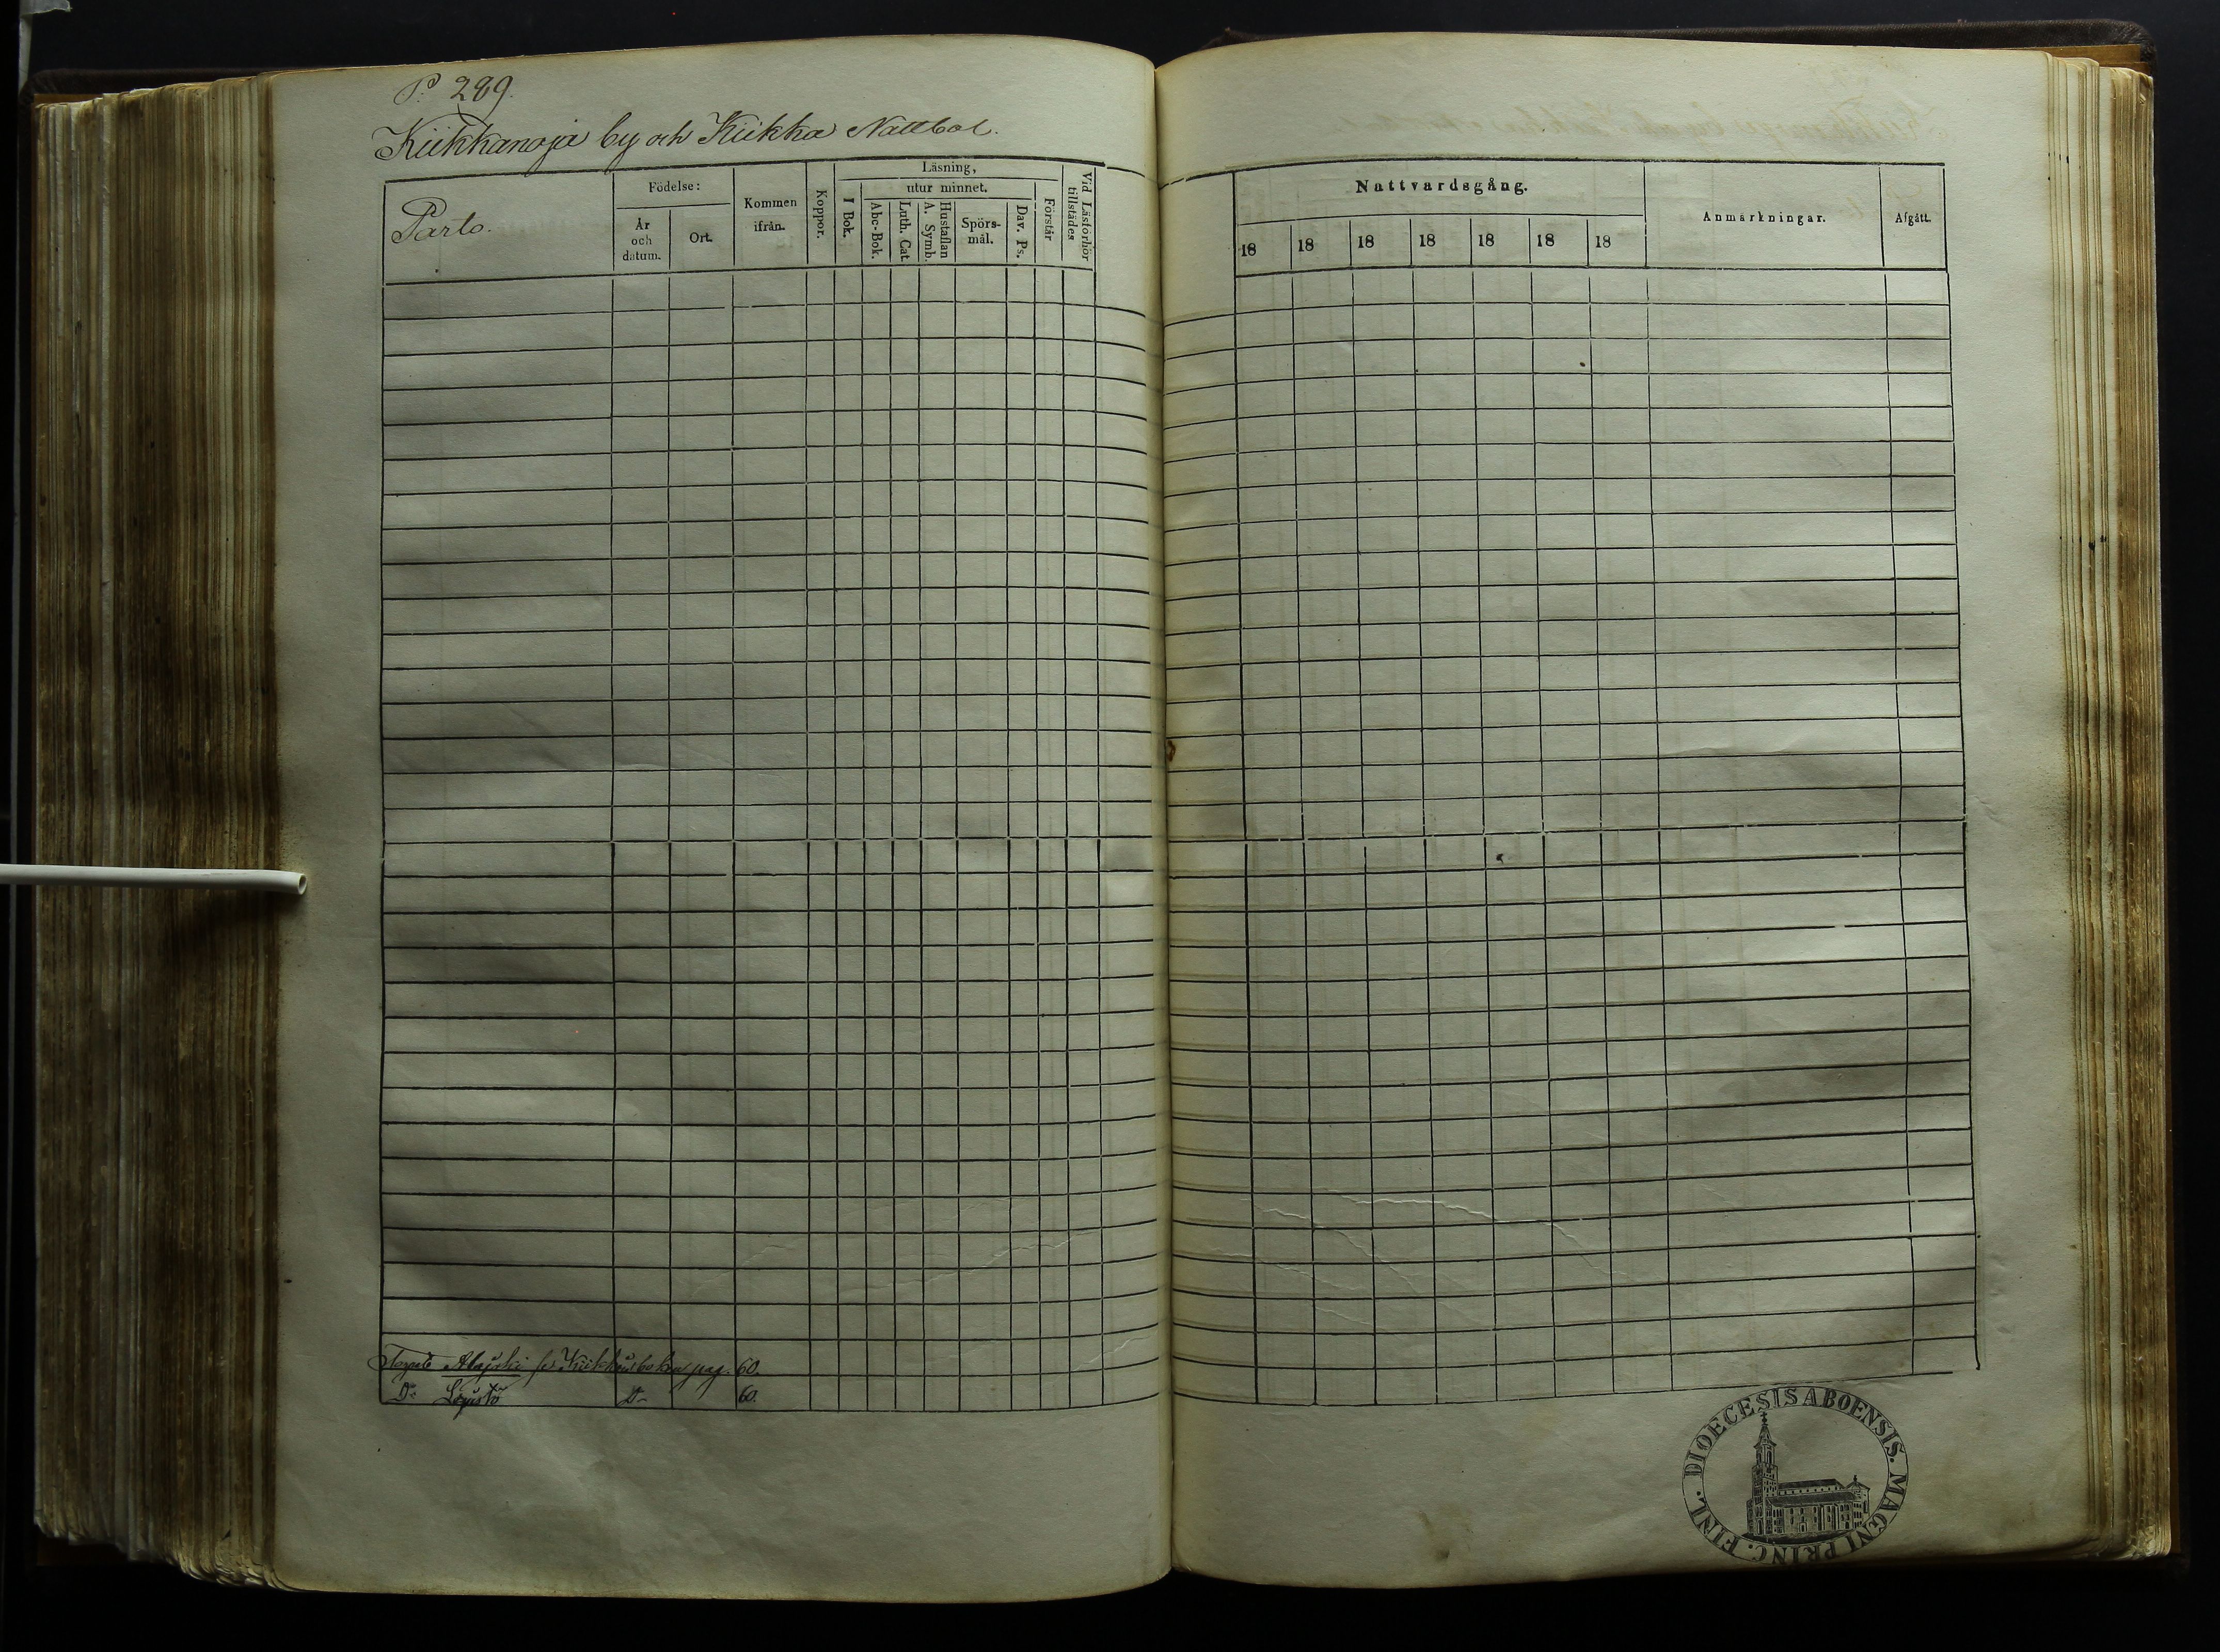 P. 289.
Kiikkanoja by och Kiikka Nattbol.
Parto.
Födelse:
År och datum.
Ort.
Kommen ifrån.
Koppor.
Läsning,
utur minnet.
I Bok.
Abc-Bok.
Luth. Cat.
Hustaflan A. Symb.
Spörs-mål.
Dav. Ps.
Förstår
Vid Läsförhör tillstädes
Nattvardsgång.
18 18 18 18 18 18 18
Anmärkningar.
Afgått.
pag. 60.
Do 60.
FINL. DIOECESIS ABOENSIS. MAGNI PRINC.